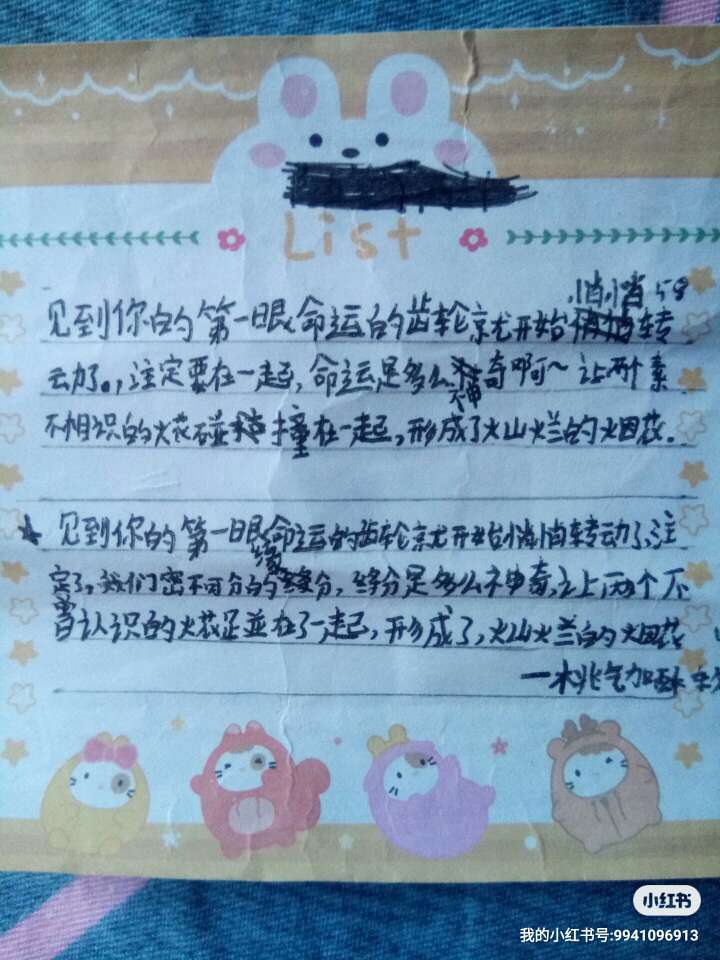 List
悄悄 58
见到你的第一眼命运的齿轮就开始转
动了。，注定要在一起，命运是多么神奇啊～让两个素
不相识的火花碰撞在一起，形成了火山烂的火因花．
见到你的第一眼命运的齿轮就开始悄悄转动了，注
定了，我们密不可分的缘分，缘分是多么神奇，让两个不
曾认识的火花碰在了一起，形成了，火山火兰的火因花
一桃气加酥
小红书
我的小红书号:9941096913